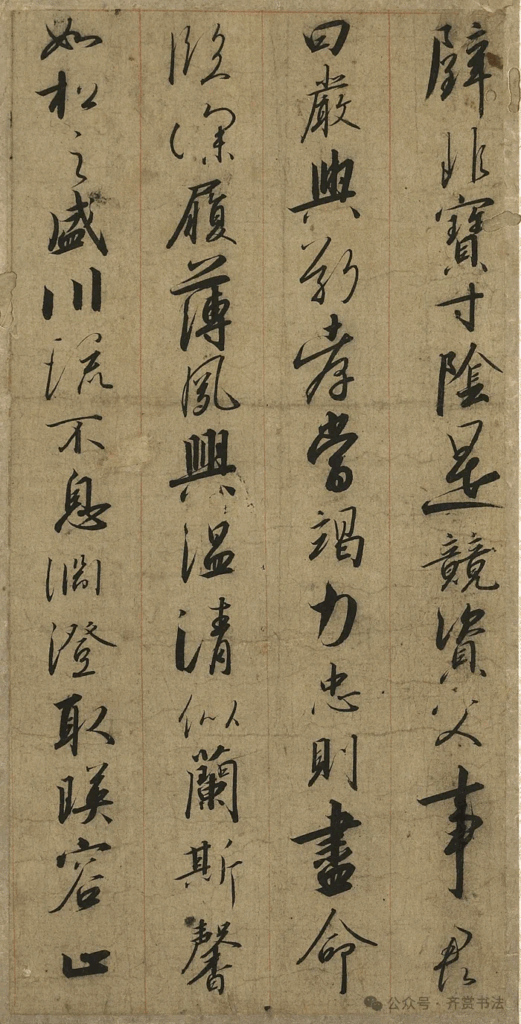 璧非寶寸陰是競資父事君
曰嚴與敬孝當竭力忠則盡命
臨深履薄夙興溫清似蘭斯馨
如松之盛川流不息淵澄取暎容止
公众号·齐赏书法